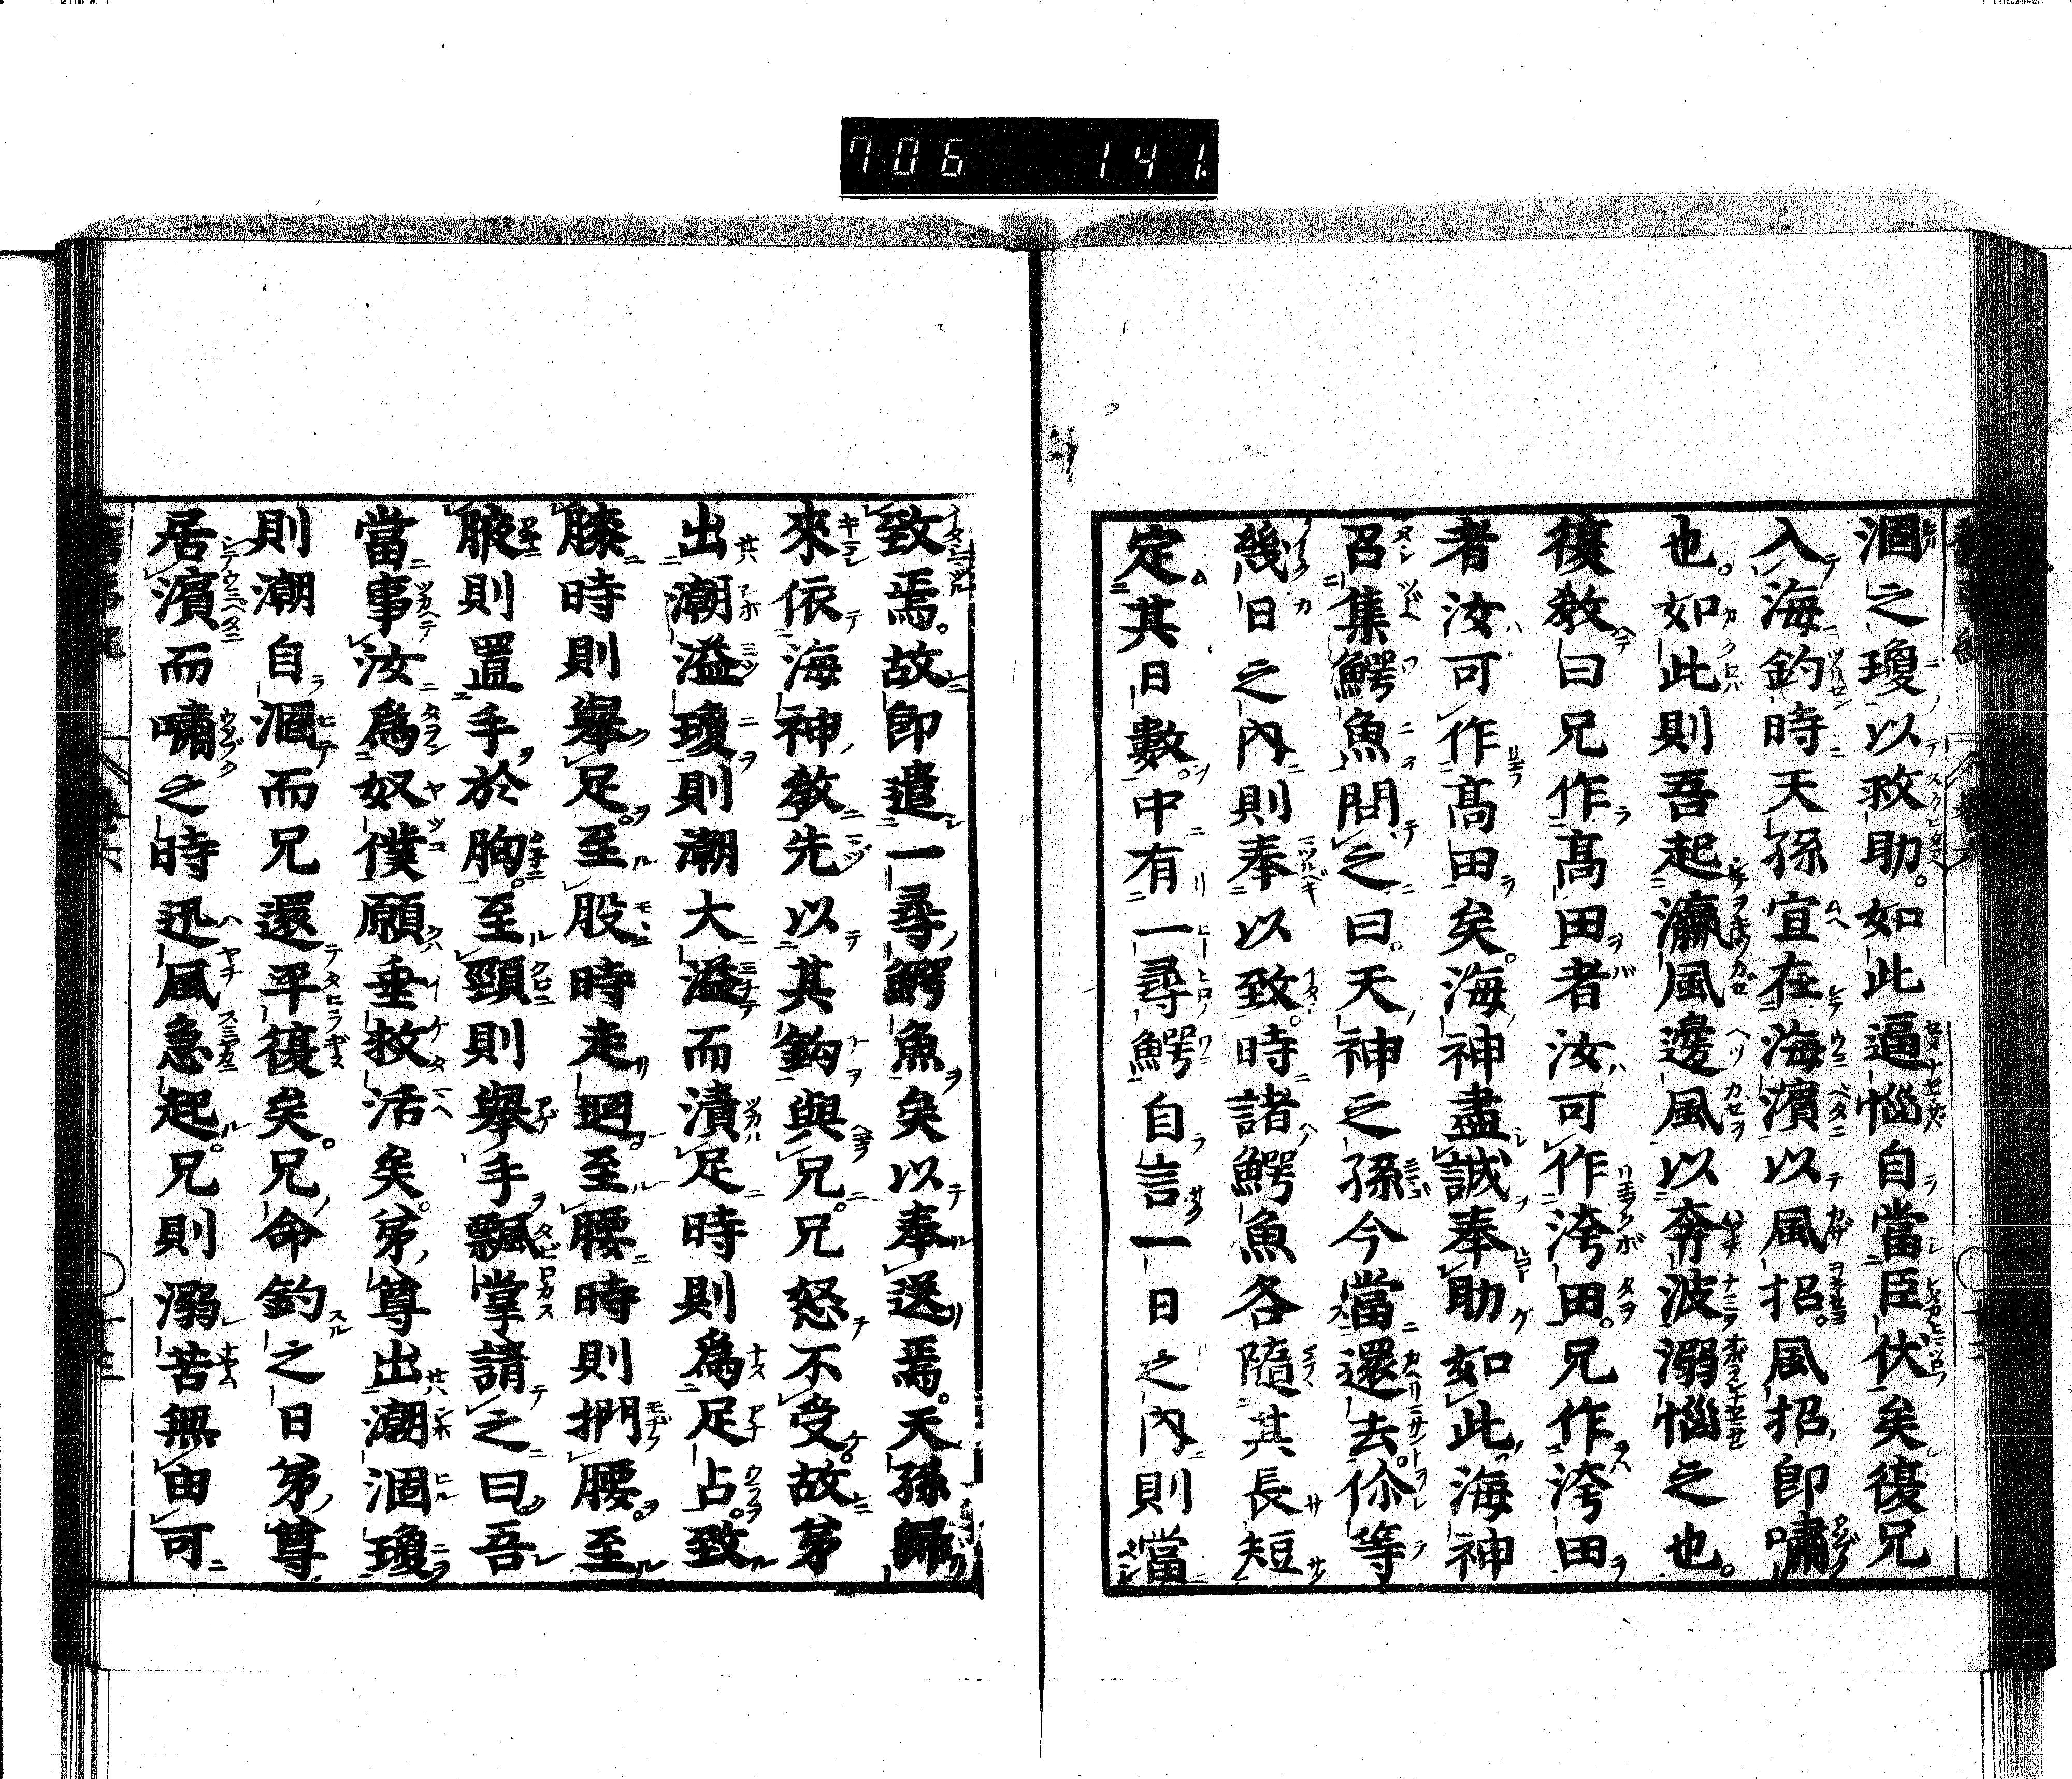 706 141.
涸之瓊以救助。如此逼惱自當臣伏矣復兄
入海釣時天孫宜在海濱以風招。風招即嘯
也。如此則吾起瀛風邊風以奔波溺惱之也。
復教曰兄作髙田者汝可作洿田。兄作洿田
者汝可作髙田矣。海神盡誠奉助如此海神
召集鰐魚問之曰。天神之孫今當還去。你等
幾日之內則奉以致。時諸鰐魚各隨其長短
定其日數。中有一尋鰐自言一日之內則當
致焉。故即遣一尋鰐魚矣以奉送焉。天孫歸
來依海神教先以其鈎與兄。兄怒不受。故弟
出潮溢瓊則潮大溢而漬足時則爲足占。致
膝時則舉足。至股時走廻。至腰時則捫腰。至
腋則置手於胸。至頸則舉手飄掌請之曰吾
當事汝爲奴僕願垂救活矣。弟尊出潮涸瓊
則潮自涸而兄還平復矣。兄命釣之日弟尊
居濱而嘯之時迅風急起。兄則溺苦無由可